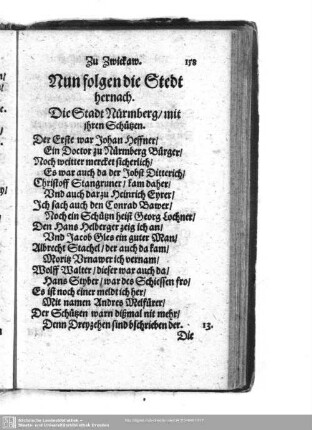 Zu Zwickaw. 158
Nun folgen die Stedt
hernach.
Die Stadt Nürmberg/ mit
ihren Schützen.
Der Erste war Johan Heffner/
Ein Doctor zu Nürmberg Bürger/
Noch weitter mercket sicherlich/
Es war auch da der Jobst Ditterich/
Christoff Stangruner/ kam daher/
Vnd auch darzu Heinrich Eyrer/
Ich sach auch den Conrad Bawer/
Noch ein Schützn heist Georg Lochner/
Den Hans Helberger zeig ich an/
Vnd Jacob Gies ein guter Man/
Albrecht Stachel/ der auch da kam/
Moritz Vrnawer ich vernam/
Wolff Walter/ dieser war auch da/
Hans Styber/ war des Schiessen fro/
Es ist noch einer meldt ich her/
Mit namen Andres Melfürer/
Der Schützen warn dißmal nit mehr/
Denn Dreyzehen sind bschrieben der. 13.
Die